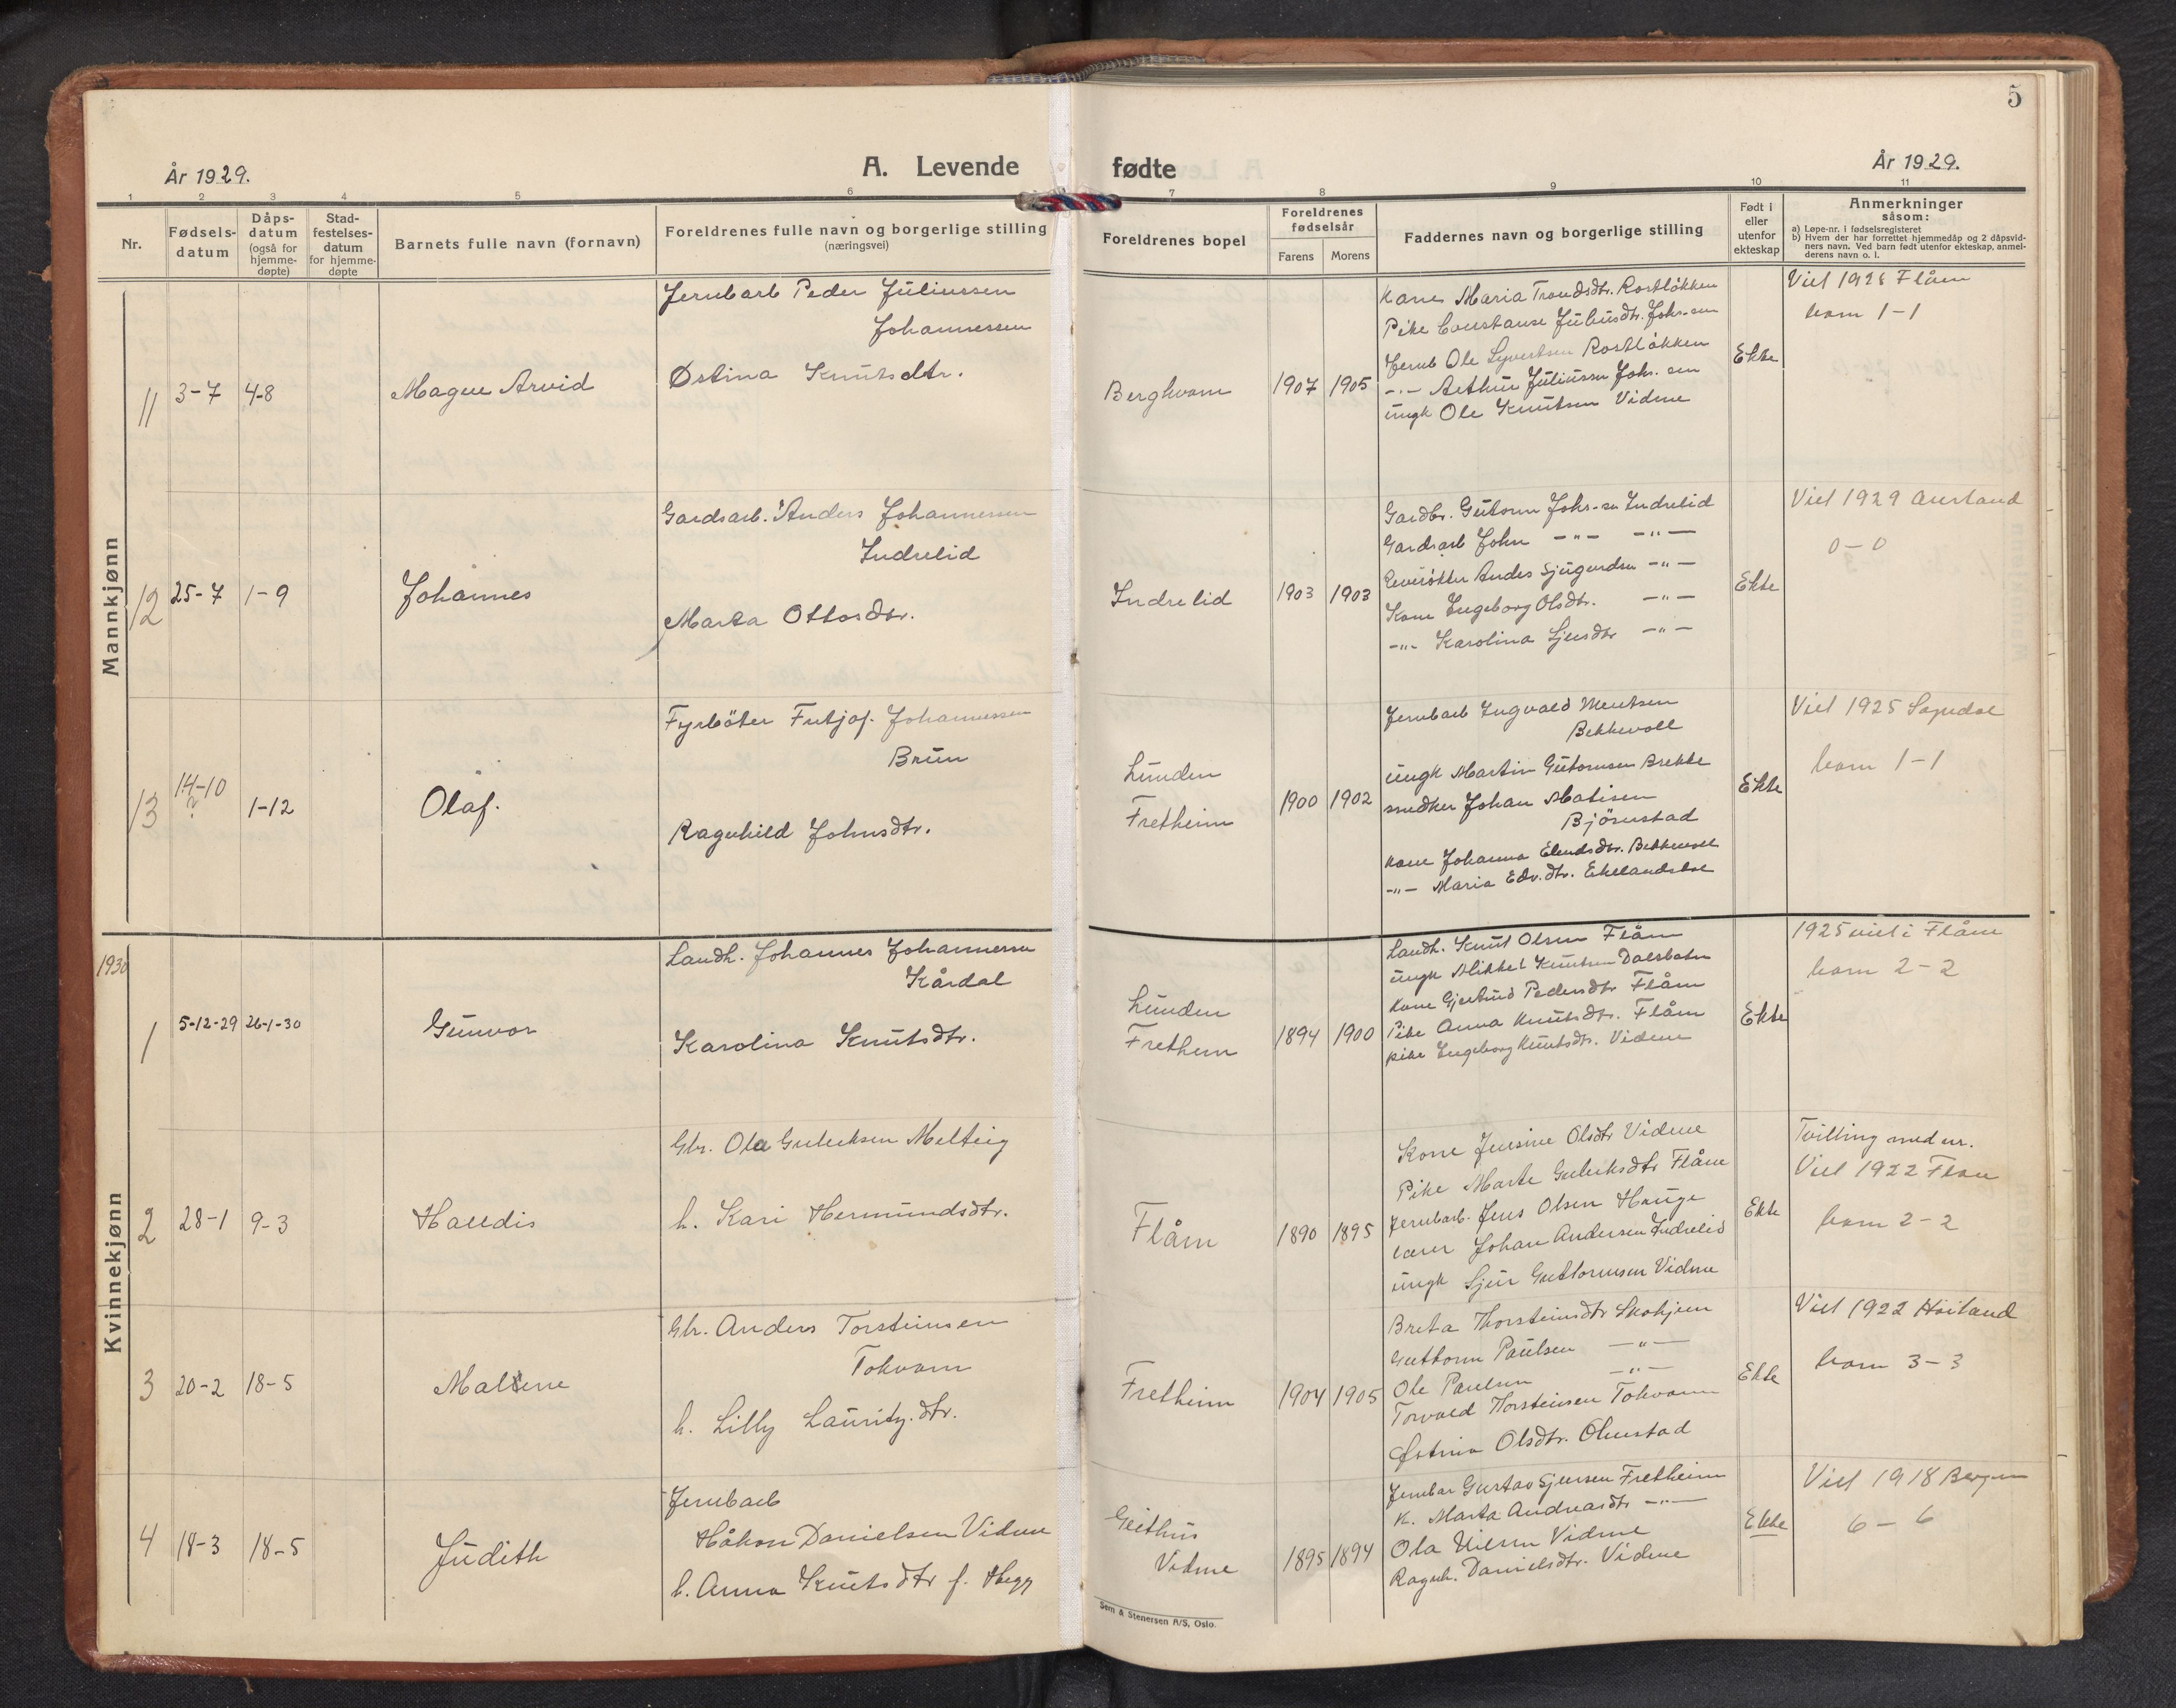 5
År 1929.
A. Levende fødte
År 1929.
1 2 3 4 5 6 7 8 9 10 11
Nr.
Fødsels-
datum
Dåps-
datum
(også for
hjemme-
døpte)
Stad-
festelses-
datum
for hjemme-
døpte
Barnets fulle navn (fornavn)
Foreldrenes fulle navn og borgerlige stilling
(næringsvei)
Foreldrenes bopel
Foreldrenes
fødselsår
Farens Morens
Faddernes navn og borgerlige stilling
Født i
eller
utenfor
ekteskap
Anmerkninger
såsom:
a) Løpe-nr. i fødselsregisteret
b) Hvem der har forrettet hjemmedåp og 2 dåpsvid-
ners navn. Ved barn født utenfor ekteskap, anmel-
derens navn o. l.
Mannkjønn
11
3-7
4-8
Magne Arvid
Jernbarb Peder Juliussen
Johannessen
Østina Knutsdtr.
Berghvam
1907
1905
Kone Maria Trondsdtr. Rostløkken
Pike Constanse Juliusdtr. Johs-sen
Jernb Ole Syvertsen Rostløkken
-"- Arthur Juliussen Johs. sen
ungk Ole Knutsen Vidme
Ekte
Viet 1928 Flåm
barn 1-1
12
25-7
1-9
Johannes
Gardsarb. Anders Johannessen
Indrelid
Marta Ottosdtr.
Indrelid
1903
1903
Gardbr. Gutorm Johs-sen Indrelid
Gardsarb John -"- -"-
Anders Sjugurdsen -"-
Kone Ingeborg Olsdtr. -"-
-"- Karolina Sjursdtr -"-
Ekte
Viet 1929 Aurland
0-0
13
14-10
?
1-12
Olaf.
Fyrbøter Fritjof Johannessen
Brun
Ragnhild Johnsdtr.
Lunden
Fretheim
1900
1902
Jernbarb Ingvald Mentsen
Bekkevoll
ungk Martin Gutormsen Brekke
snedker Johan Matisen
Bjørnstad
kone Johanna Elendsdtr. Bekkevoll
-"- Maria Edv.dtr.
Ekte
Viet 1925 Sogndal
barn 1-1
Kvinnekjønn
1930
1
5-12-29
26-1-30
Gunvor
Landh. Johannes Johannessen
Kårdal
Karolina Knutsdtr.
Lunden
Frethem
1894
1900
Landh. Knut Olsen Flåm
ungk Mikkel Knutsen Dalsbotn
Kone Gjertrud Pedersdtr Flåm
Pike Anna Knutsdtr. Flåm
pike Ingeborg Knutsdtr. Vidme
Ekte
1925 viet i Flåm
barn 2-2
2
28-1
9-3
Halldis
Gbr. Ola Gulleiksen Melteig
h. Kari Hermundsdtr.
Flåm
1890
1895
Kone Jensine Olsdtr Vidme
Pike Marta Gulleiksdtr Flåm
Jernbarb. Jens Olsen Hauge
lærer Johan Andersen Indrelid
ungk Sjur Guttormsen Vidme
Ekte
Tvilling med nr.
Viet 1922 Flåm
barn 2-2
3
20-2
18-5
Malene
Gbr. Anders Torsteinsen
Tokvam
h. Lilly Lauritz.dtr.
Fretheim
1904
1905
Breta Thorsteinsdtr Skahjem
Guttorm Paulsen -"-
Ole Paulsen -"-
Torvald Thorsteinsen Tokvam
Østina Olsdtr. Olmstad
Ekte
Viet 1922
barn 3-3
4
18-3
18-5
Judith
Jernbarb
Håkon Danielsen Vidme
h. Anna Knutsdtr f. Hegg
Geithus
Vidme
1895
1894
Jernbar Gustav Sjursen Fretheim
K. Marta Andreasdtr -"-
Ola Nilsen Vidme
Ragnh. Danielsdtr. Vidme
Ekte
Viet 1918 Bergen
6-6
Sem & Stenersen A/S, Oslo.